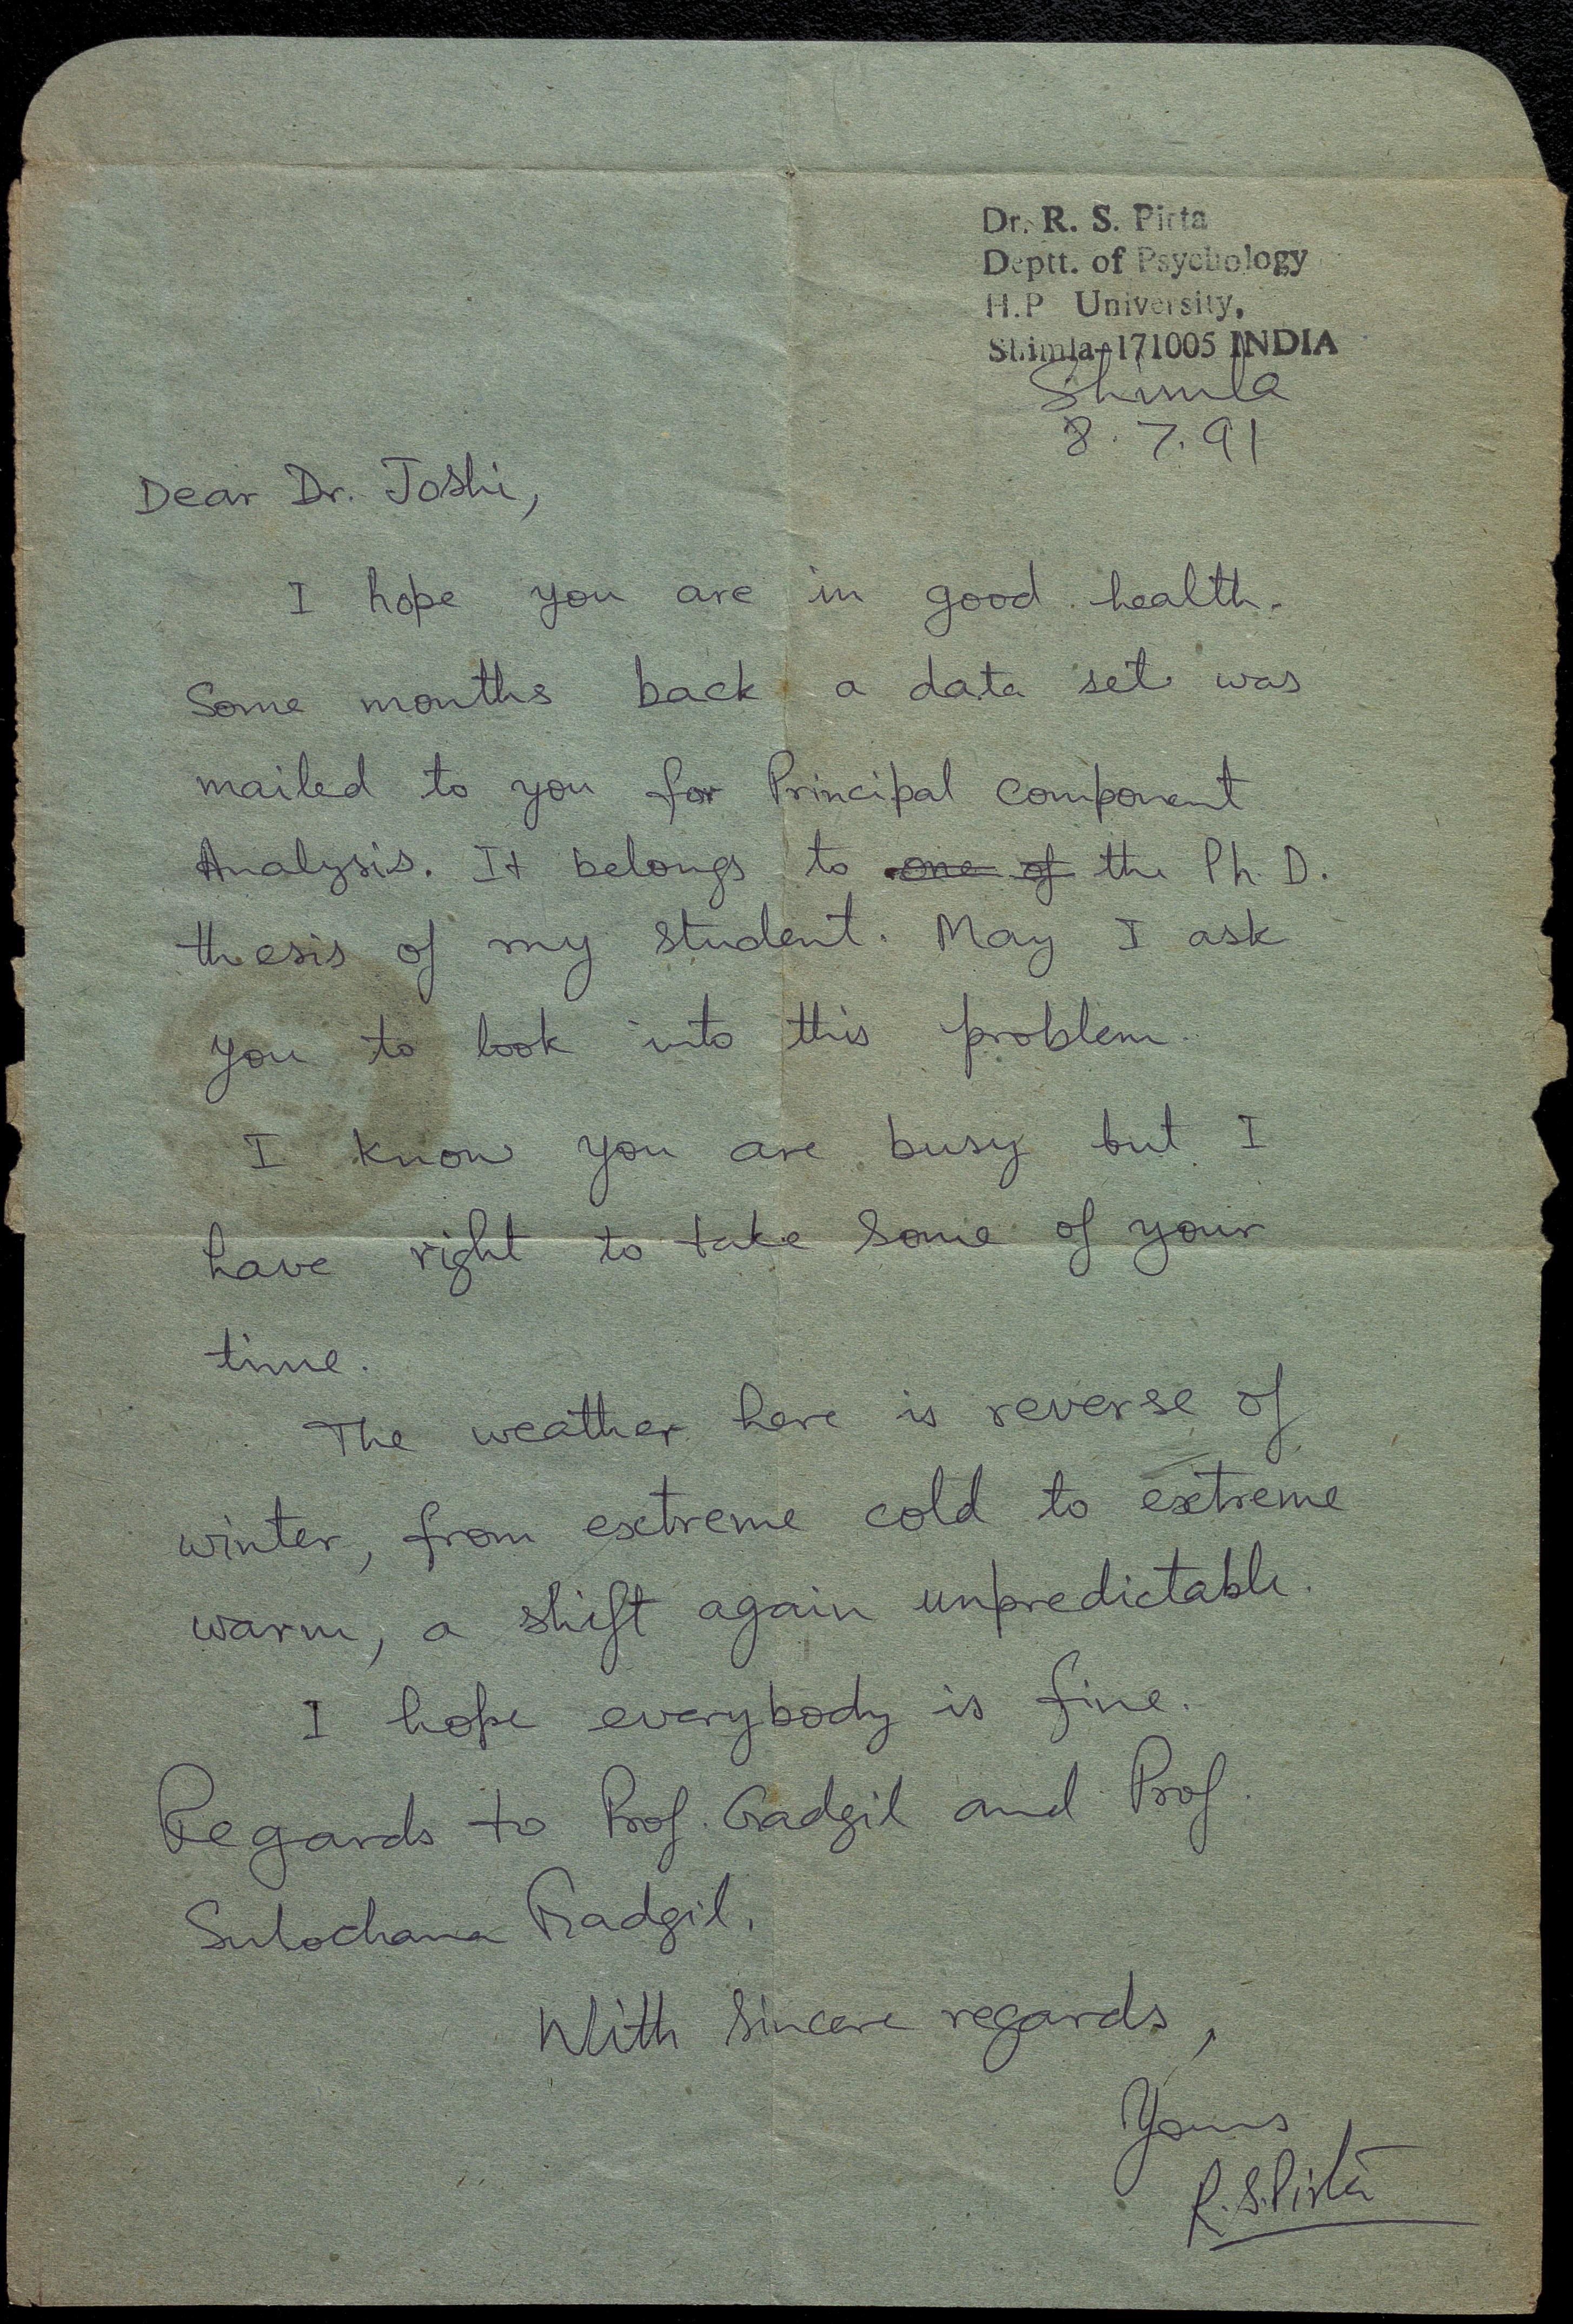 Dr. R. S. Pirta
Deptt. of Psychology
H.P University,
Shimla-171005 INDIA
Shimla
8.7.91
Dear Dr. Joshi,
I hope you are in good health.
Some months back a data set was
mailed to you for Principal component
Analysis. It belongs to one of the Ph.D.
thesis of my student. May I ask
you to look into this problem.
I know you are busy but I
have right to take some of your
time.
The weather here is reverse of
winter, from extreme cold to extreme
warm, a shift again unpredictable.
I hope everybody is fine.
Regards to Prof. Gadgil and Prof.
Sulochana Gadgil.
With sincere regards,
Yours
R.S.Pirta